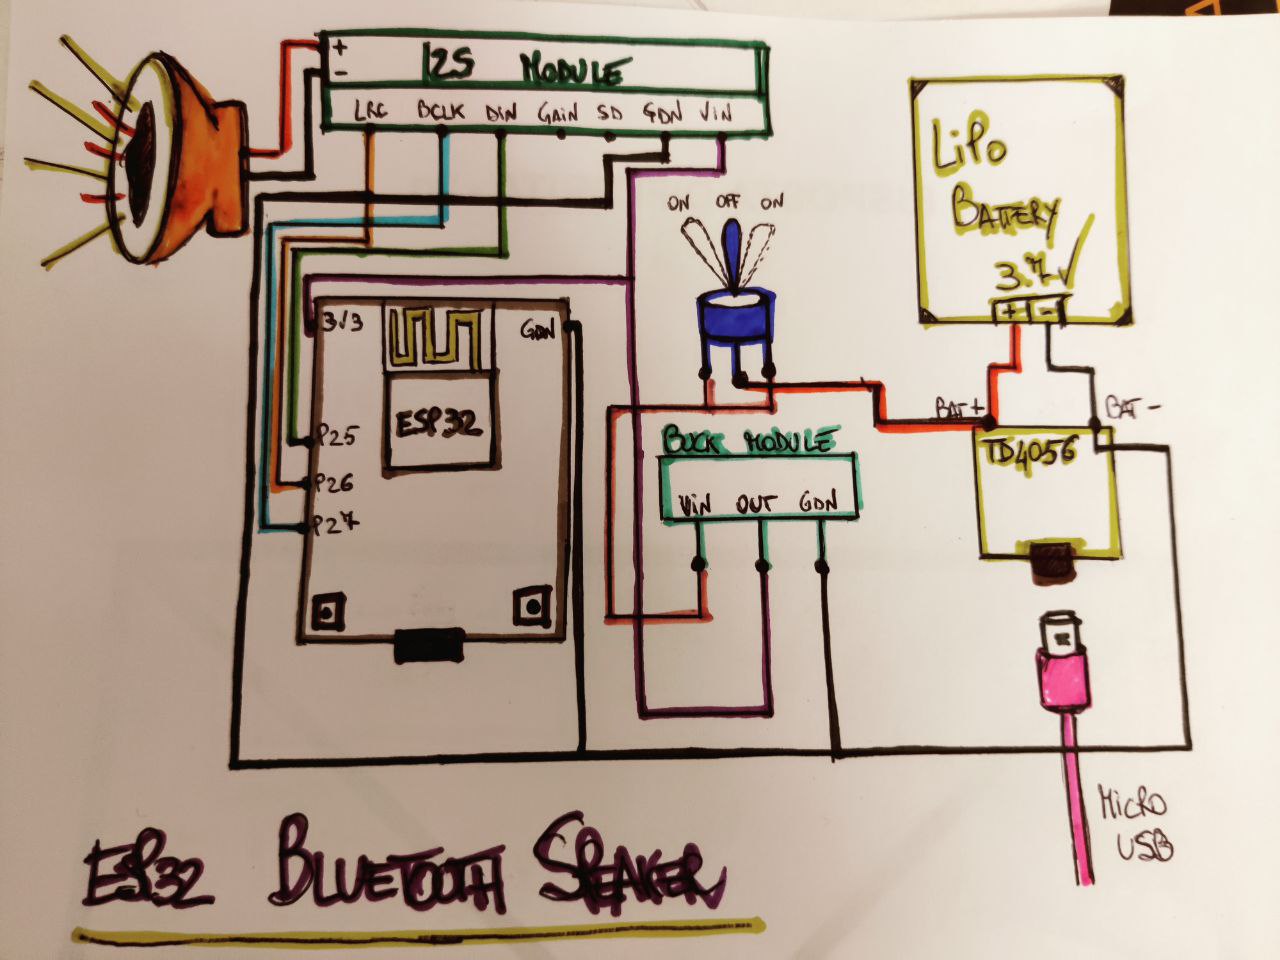 +
-
I2S MODULE
LRC BCLK DIN GAIN SD GDN VIN
ON OFF ON
LiPo
BATTERY
3.7
+ -
3V3
GDN
ESP32
P25
P26
P27
BUCK MODULE
VIN OUT GDN
BAT+
BAT-
TD4056
MICRO
USB
ESP32 BLUETOOTH SPEAKER